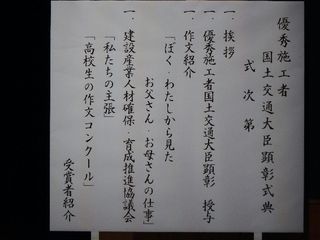 優秀施工者
国土交通大臣顕彰式典
式次第
一．挨拶
一．優秀施工者国土交通大臣顕彰　授与
一．作文紹介
「ぼく・わたしから見た
お父さん・お母さんの仕事」
一．建設産業人材確保・育成推進協議会
「私たちの主張」
「高校生の作文コンクール」
受賞者紹介